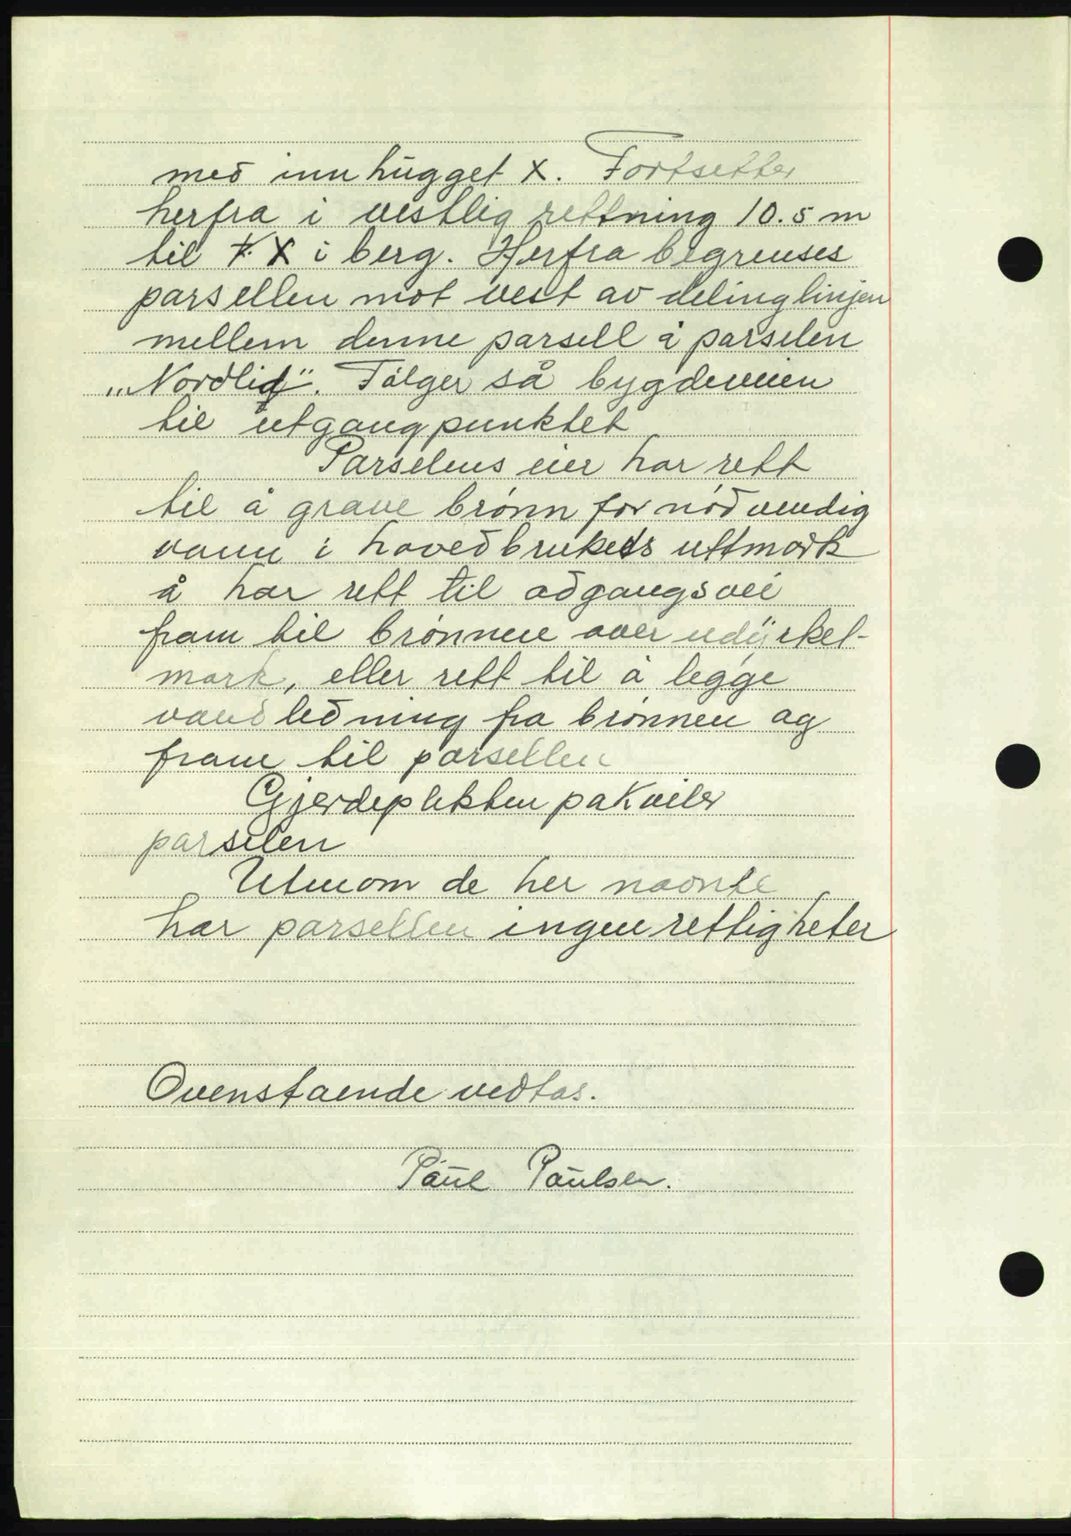 med innhugget X. Fortsetter
herfra i vestlig rettning 10.5 m
til X i berg. Herfra begrenses
parsellen mot vest av delinglinjen
mellem denne parsell å parselen
"Nordlid". Følger så bygdeveien
til utgangpunktet
Parselens eier har rett
til å grave brønn for nødvendig
vann i hovedbrukets uttmark
å har rett til adgangsvei
fram til brønnen over udyrket-
mark, eller rett til å legge
vandledning fra brønnen og
fram til parsellen
Gjerdeplikten påkviler
parselen
Utenom de her nevnte
har parsellen ingen rettigheter
Ovenstaende vedtas.
Paul Paulsen.